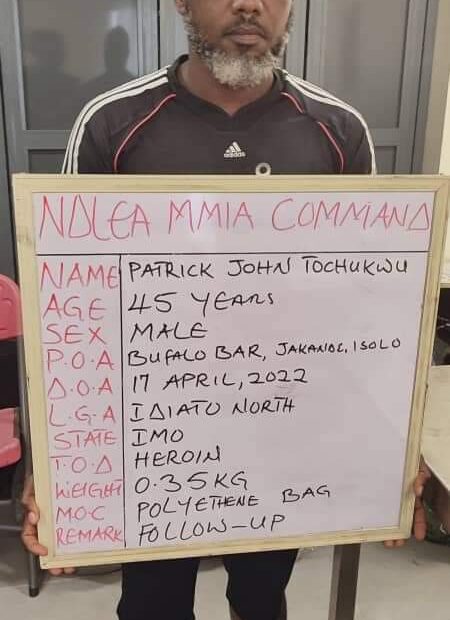 adidas
NDLEA MMIA COMMAND
NAME PATRICK JOHN TOCHUKWU
AGE 45 YEARS
SEX MALE
P.O.A BUFALO BAR, JAKANDE, ISOLO
D.O.A 17 APRIL, 2022
L.G.A IDIATO NORTH
STATE IMO
T.O.D HEROIN
WEIGHT 0.35KG
M.O.C POLYETHENE BAG
REMARK FOLLOW-UP